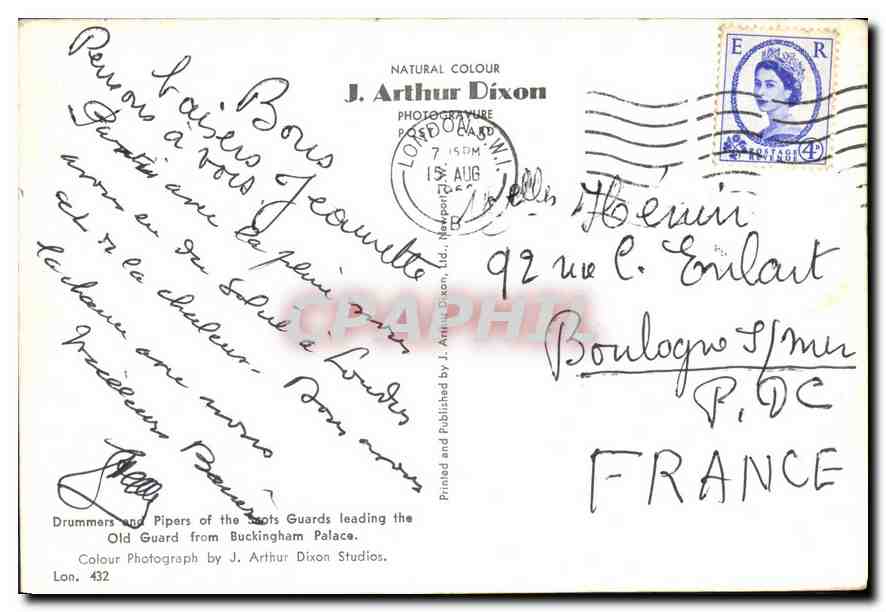 Pensons à vous
Bons
baisers
Jeannette
Partis avec la pluie nous
avons eu du soleil à Londres
et de la chaleur. Nous avons
la chance avec nous
Meilleurs Baisers
NATURAL COLOUR
J. Arthur Dixon
PHOTOGRAVURE
POST CARD
LONDON S.W.1.
7 15PM
15 AUG
B
E R
POSTAGE
REVENUE
4D
Melles Hénin
92 rue C. Enlart
Boulogne s/mer
P. DC
FRANCE
Printed and Published by J. Arthur Dixon, Ltd., Newport I.W.
CPAPHIL
Drummers and Pipers of the Scots Guards leading the
Old Guard from Buckingham Palace.
Colour Photograph by J. Arthur Dixon Studios.
Lon. 432